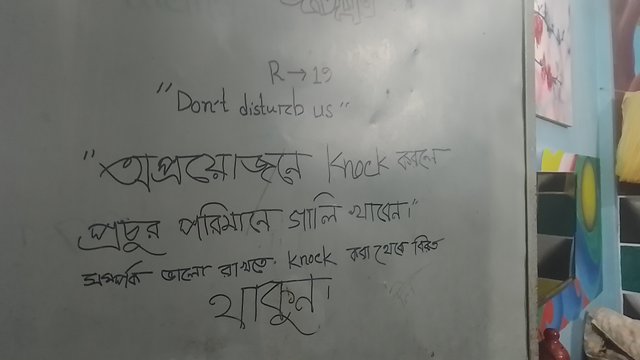 R → 19
"Don't disturb us"
"অপ্রয়োজনে Knock করলে
প্রচুর পরিমানে গালি খাবেন।"
সম্পর্ক ভালো রাখতে Knock করা থেকে বিরত
থাকুন।